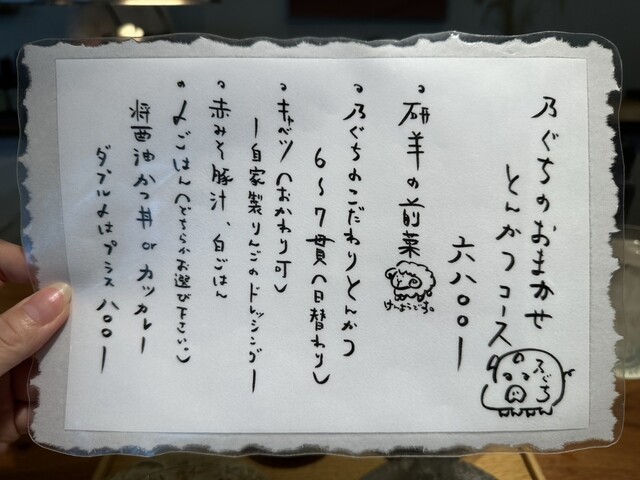 乃ぐちのおまかせ
とんかつコース
ふぐち
六八〇〇ー
・研羊の前菜
けんようです。
・乃ぐちのこだわりとんかつ
6〜7貫(日替わり)
・キャベツ(おかわり可)
ー自家製りんごのドレッシングー
・赤みそ豚汁、白ごはん
・〆ごはん(どちらかお選び下さい。)
将酉油かつ丼 or カツカレー
ダブル〆はプラス八〇〇ー